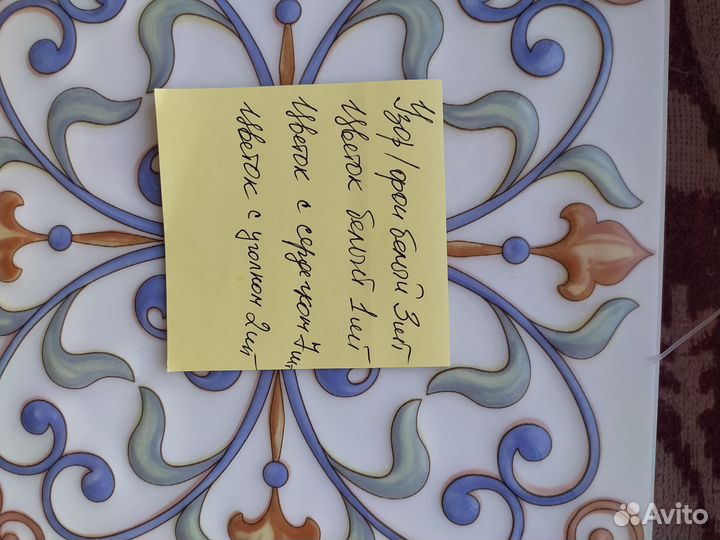 Узор/фон белый 3шт
Цветок белый 1шт
Цветок с сердечком 7шт
Цветок с уголком 2шт
Avito